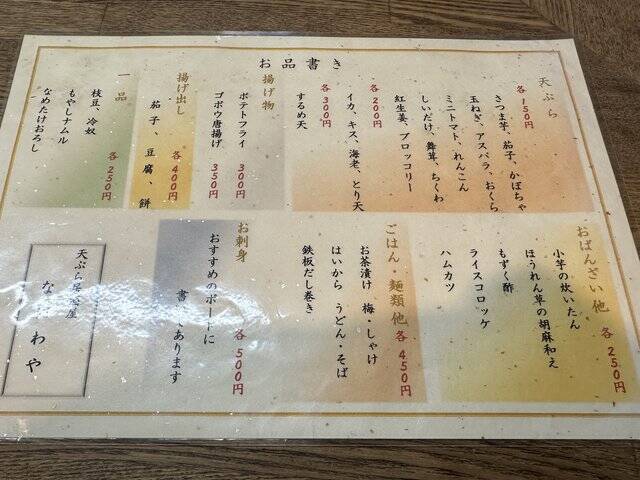 お品書き
天ぷら
各150円
さつま芋、茄子、かぼちゃ
玉ねぎ、アスパラ、おくら
ミニトマト、れんこん
しいたけ、舞茸、ちくわ
紅生姜、ブロッコリー
各200円
イカ、キス、海老、とり天
各300円
するめ天
揚げ物
ポテトフライ 300円
ゴボウ唐揚げ 350円
揚げ出し
茄子、豆腐、餅
各400円
一品
枝豆、冷奴
もやしナムル
なめたけおろし
各250円
おばんざい他 各250円
小芋の炊いたん
ほうれん草の胡麻和え
もずく酢
ライスコロッケ
ハムカツ
ごはん・麺類他 各450円
お茶漬け 梅・しゃけ
はいから うどん・そば
鉄板だし巻き
お刺身 各500円
おすすめのボードに
書いてあります
天ぷら居酒屋
な わや